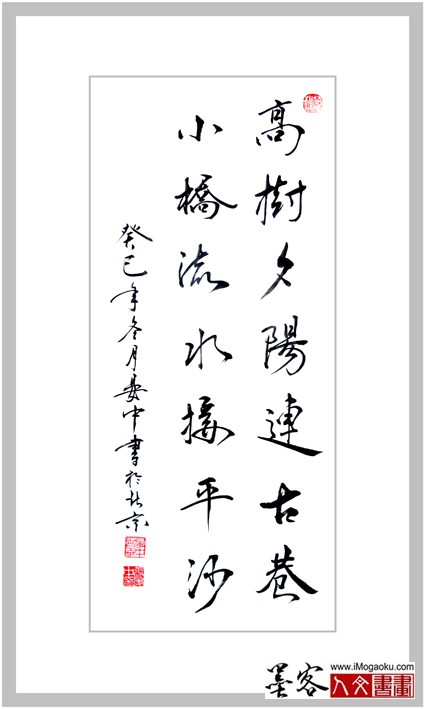 高樹夕陽連古巷
小橋流水接平沙
癸巳年冬月晏中書於北京
墨客
www.iMogaoku.com
人文書畫